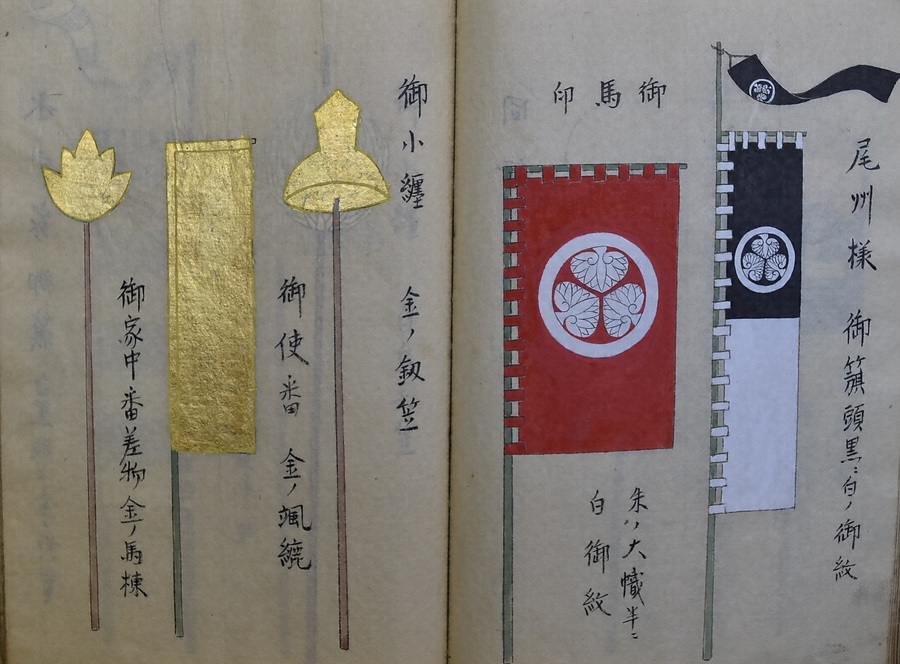 尾州様 御籏頭黒ニ白ノ御紋
御馬印
朱ノ大幟半ニ
白御紋
御小纏 金ノ釼笠
御使番 金ノ颯纔
御家中番差物金ノ馬棟